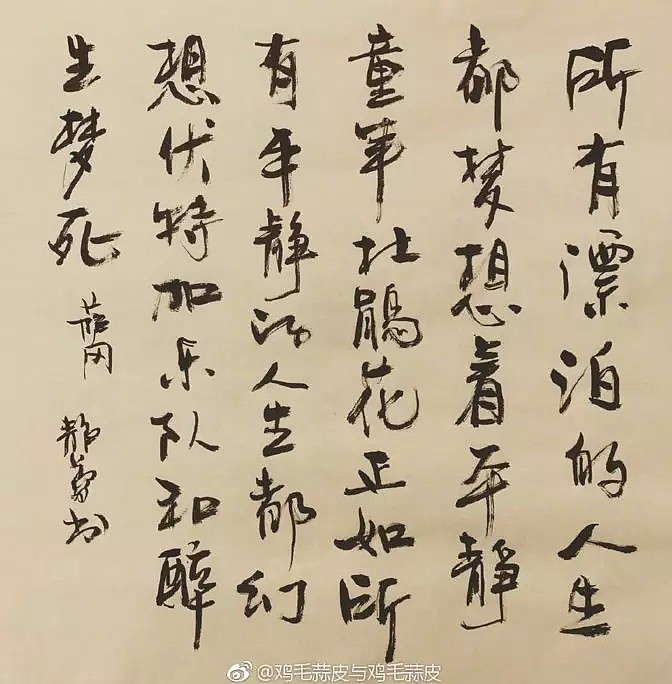 所有漂泊的人生
都梦想着平静
童年杜鹃花正如所
有平静的人生都幻
想伏特加乐队和醉
生梦死
静勇书
@鸡毛蒜皮与鸡毛蒜皮